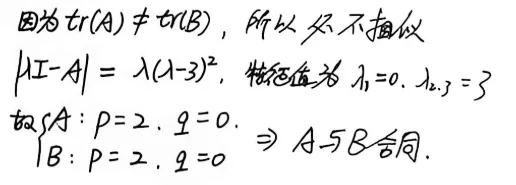 因为 tr(A) ≠ tr(B), 所以必不相似
|λI-A| = λ(λ-3)², 特征值为 λ₁=0. λ₂,₃=3
故{A: P=2, q=0.
B: P=2, q=0 ⇒ A与B合同.